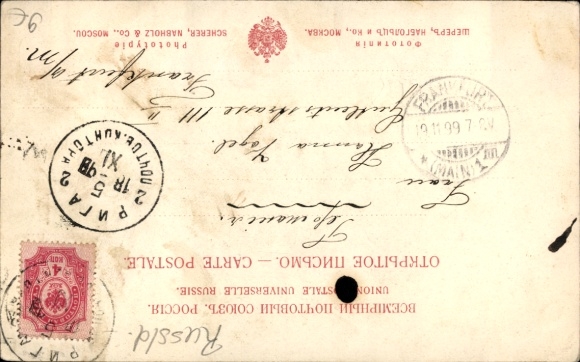 ВСЕМІРНЫЙ ПОЧТОВЫЙ СОЮЗЪ. РОССІЯ.
UNION POSTALE UNIVERSELLE RUSSIE.
ОТКРЫТОЕ ПИСЬМО. — CARTE POSTALE.
Германія.
Frau
Hanna Vogel.
Gutleutstrasse 111 II
Frankfurt a/m.
РИГА
5
XI
2 ПОЧТОВ. КОНТОРА 2
FRANKFURT
19.11.99. 7-8V.
* (MAIN) 1
4 КОП
РИГА
Фототипія
ШЕРЕРЪ, НАБГОЛЬЦЪ и Ко., МОСКВА.
Phototypie
SCHERER, NABHOLZ & Co., MOSCOU.
Russld.